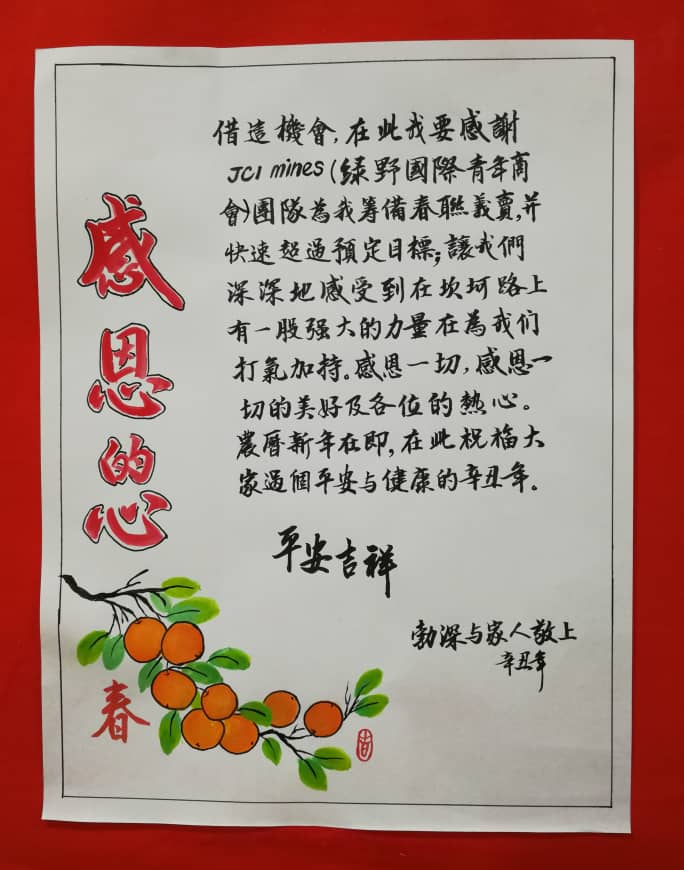 感恩的心
借這機會，在此我要感謝
JCI mines（綠野國際青年商
會）團隊為我籌備春聯義賣，并
快速超過預定目標；讓我們
深深地感受到在坎坷路上
有一股强大的力量在為我们
打氣加持。感恩一切，感恩一
切的美好及各位的熱心。
農曆新年在即，在此祝福大
家過個平安与健康的辛丑年。
平安吉祥
勃深与家人敬上
辛丑年
春
吉